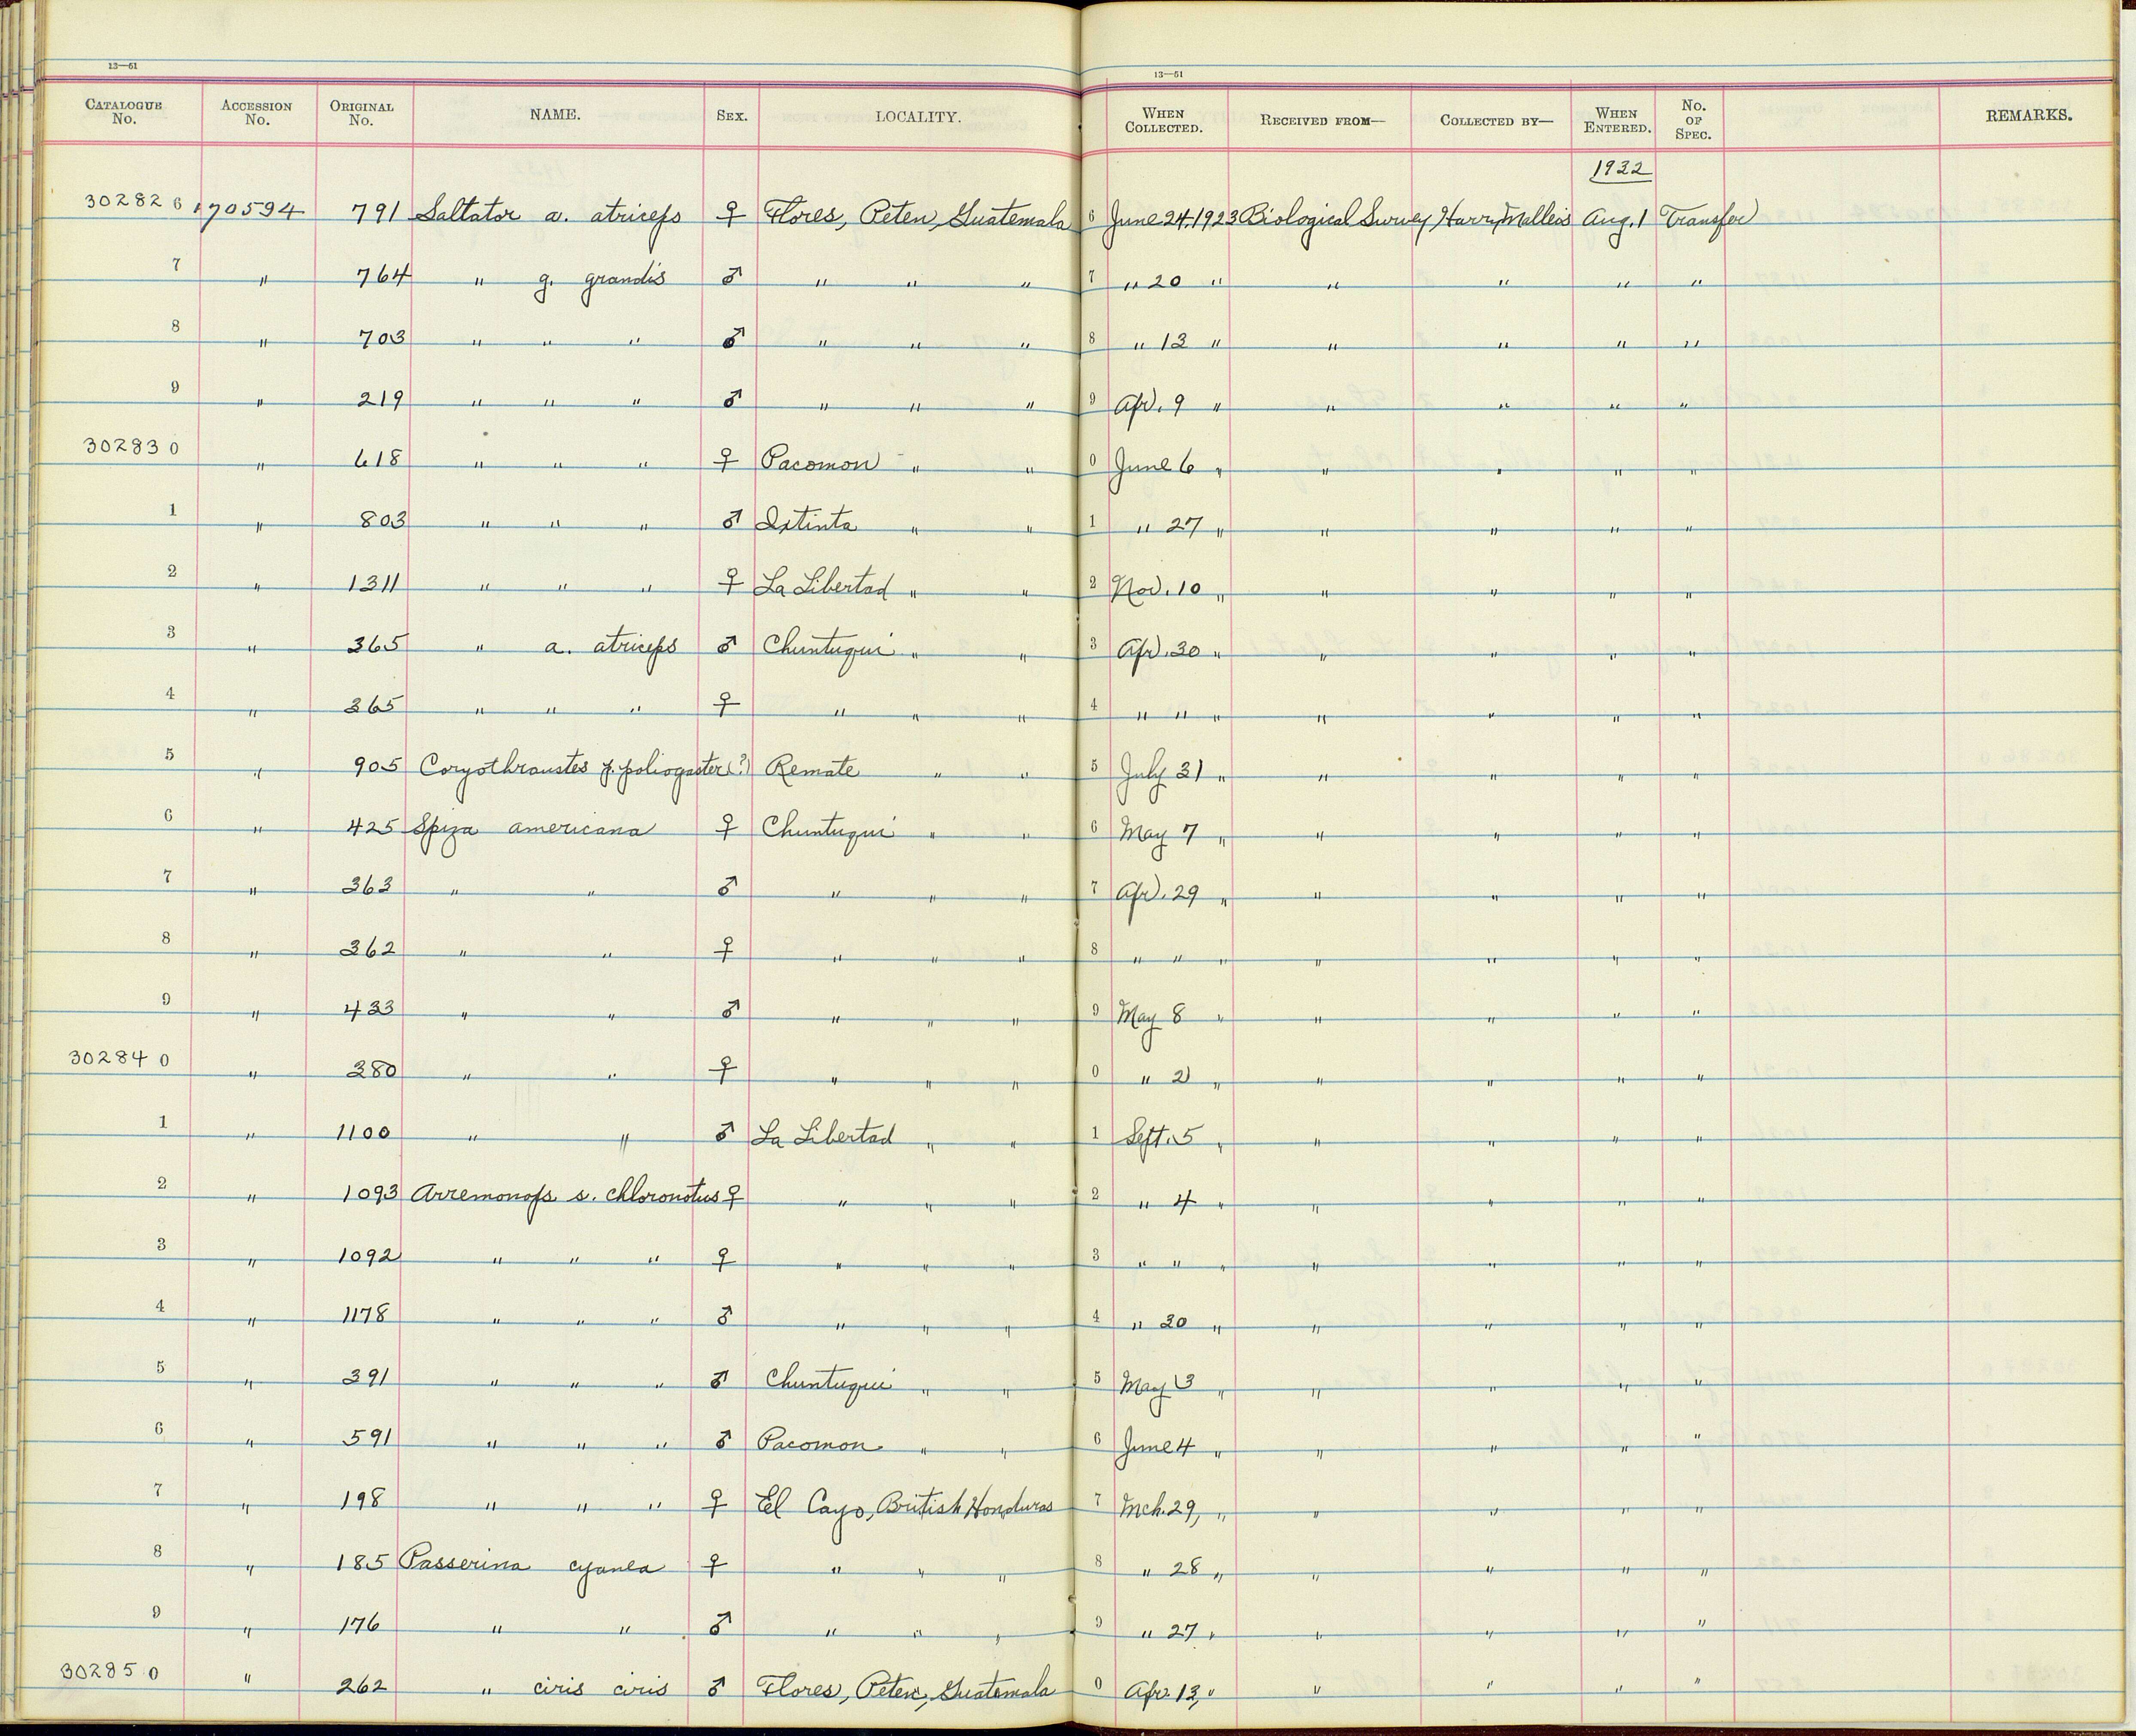 13—61
13—61
CATALOGUE No. ACCESSION No. ORIGINAL No. NAME. SEX. LOCALITY. WHEN COLLECTED. RECEIVED FROM— COLLECTED BY— WHEN ENTERED. No. OF SPEC. REMARKS.
1932
302826 170594 791 Saltator a. atriceps ♀ Flores, Peten, Guatemala 6 June 24, 1923 Biological Survey Harry Malleis Aug. 1 Transfer
7 " 764 " g. grandis ♂ " " " 7 " 20 " " " " "
8 " 703 " " " ♂ " " " 8 " 13 " " " " "
9 " 219 " " " ♂ " " " 9 Apr. 9 " " " " "
302830 " 618 " " " ♀ Pacomon " " 0 June 6 " " " " "
1 " 803 " " " ♂ Ixtinta " " 1 " 27 " " " " "
2 " 1311 " " " ♀ La Libertad " " 2 Nov. 10 " " " " "
3 " 365 " a. atriceps ♂ Chuntuqui " " 3 Apr. 30 " " " " "
4 " 365 " " " ♀ " " " 4 " " " " " " "
5 " 905 Caryothraustes p. poliogaster (?) Remate " " 5 July 31 " " " " "
6 " 425 Spiza americana ♀ Chuntuqui " " 6 May 7 " " " " "
7 " 363 " " ♂ " " " 7 Apr. 29 " " " " "
8 " 362 " " ♀ " " " 8 " " " " " " "
9 " 433 " " ♂ " " " 9 May 8 " " " " "
302840 " 380 " " ♀ " " " 0 " 2 " " " " "
1 " 1100 " " ♂ La Libertad " " 1 Sept. 5 " " " " "
2 " 1093 Arremonops s. chloronotus ♀ " " " 2 " 4 " " " " "
3 " 1092 " " " ♀ " " " 3 " " " " " " "
4 " 1178 " " " ♂ " " " 4 " 30 " " " " "
5 " 391 " " " ♂ Chuntuqui " " 5 May 3 " " " " "
6 " 591 " " " ♂ Pacomon " " 6 June 4 " " " " "
7 " 198 " " " ♀ El Cayo, British Honduras 7 Mch. 29, " " " " "
8 " 185 Passerina cyanea ♀ " " " 8 " 28 " " " " "
9 " 176 " " ♂ " " " 9 " 27 " " " " "
302850 " 262 " ciris ciris ♂ Flores, Peten, Guatemala 0 Apr. 13, " " " " "